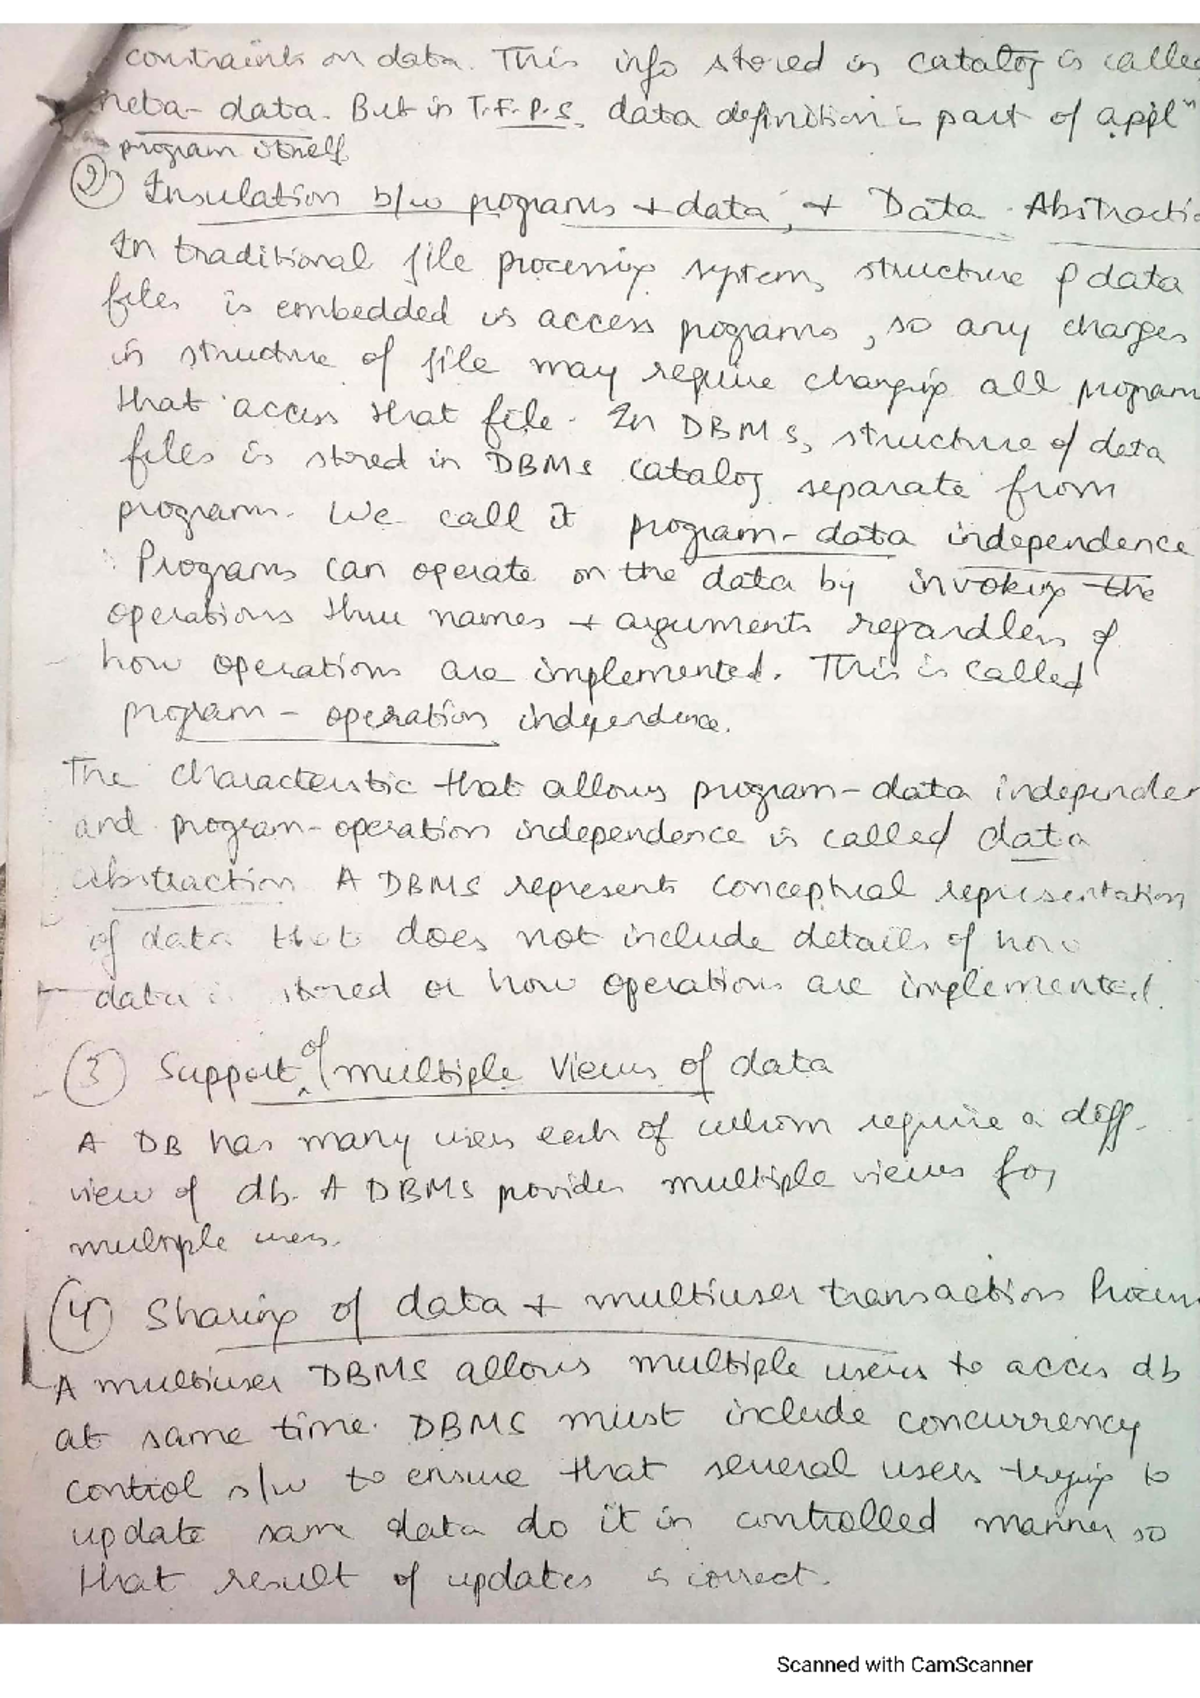 constraints on data. This info stored in catalog is called
meta-data. But in T.F.P.S, data definition is part of applⁿ
program itself
② Insulation b/w programs + data, + Data Abstractio
In traditional file processing system, structure of data
files is embedded in access programs, so any changes
in structure of file may require changing all program
that access that file. In DBMS, structure of data
files is stored in DBMS catalog separate from
program. We call it program-data independence
Programs can operate on the data by invoking the
operations thru names + arguments regardless of
how operations are implemented. This is called
program-operation independence.
The characteristic that allows program-data independen
and program-operation independence is called data
abstraction A DBMS represents conceptual representation
of data that does not include details of how
data is stored or how operations are implemented.
③ Support of multiple Views of data
A DB has many users each of whom require a diff.
view of db. A DBMS provides multiple views for
multiple users.
④ Sharing of data + multiuser transaction Process
A multiuser DBMS allows multiple users to access db
at same time. DBMS must include concurrency
control s/w to ensure that several users trying to
update same data do it in controlled manner so
that result of updates is correct.
Scanned with CamScanner